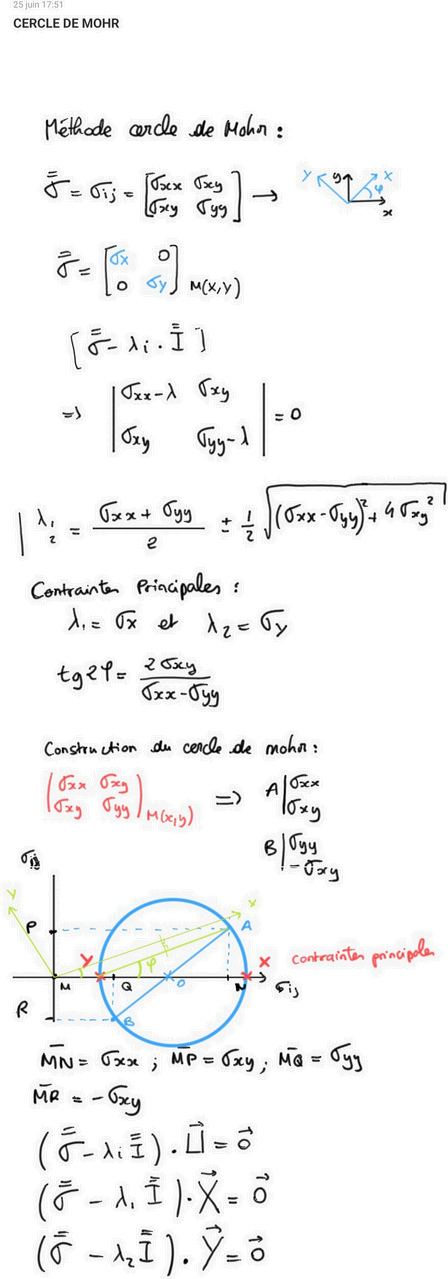 25 juin 17:51
CERCLE DE MOHR
Méthode cercle de Mohr :
σ̿ = σij = [σxx σxy
σxy σyy] →
Y y X φ x
σ̿ = [σX 0
0 σY] M(X,Y)
[σ̿ - λi . I̿]
=> |σxx-λ σxy
σxy σyy-λ| = 0
| λ1 2 = (σxx + σyy)/2 ± 1/2 √((σxx-σyy)² + 4σxy²)
Contraintes Principales :
λ1 = σX et λ2 = σY
tg2φ = 2σxy/(σxx-σyy)
Construction du cercle de mohr :
(σxx σxy
σxy σyy) M(x,y) => A|σxx
σxy
B|σyy
-σxy
Y X
P A
Y φ X contraintes principales
M Q O N σij
R B
M̅N̅ = σxx ; M̅P̅ = σxy ; M̅Q̅ = σyy
M̅R̅ = -σxy
(σ̿ - λi I̿) . U⃗ = 0⃗
(σ̿ - λ1 I̿) . X⃗ = 0⃗
(σ̿ - λ2 I̿) . Y⃗ = 0⃗